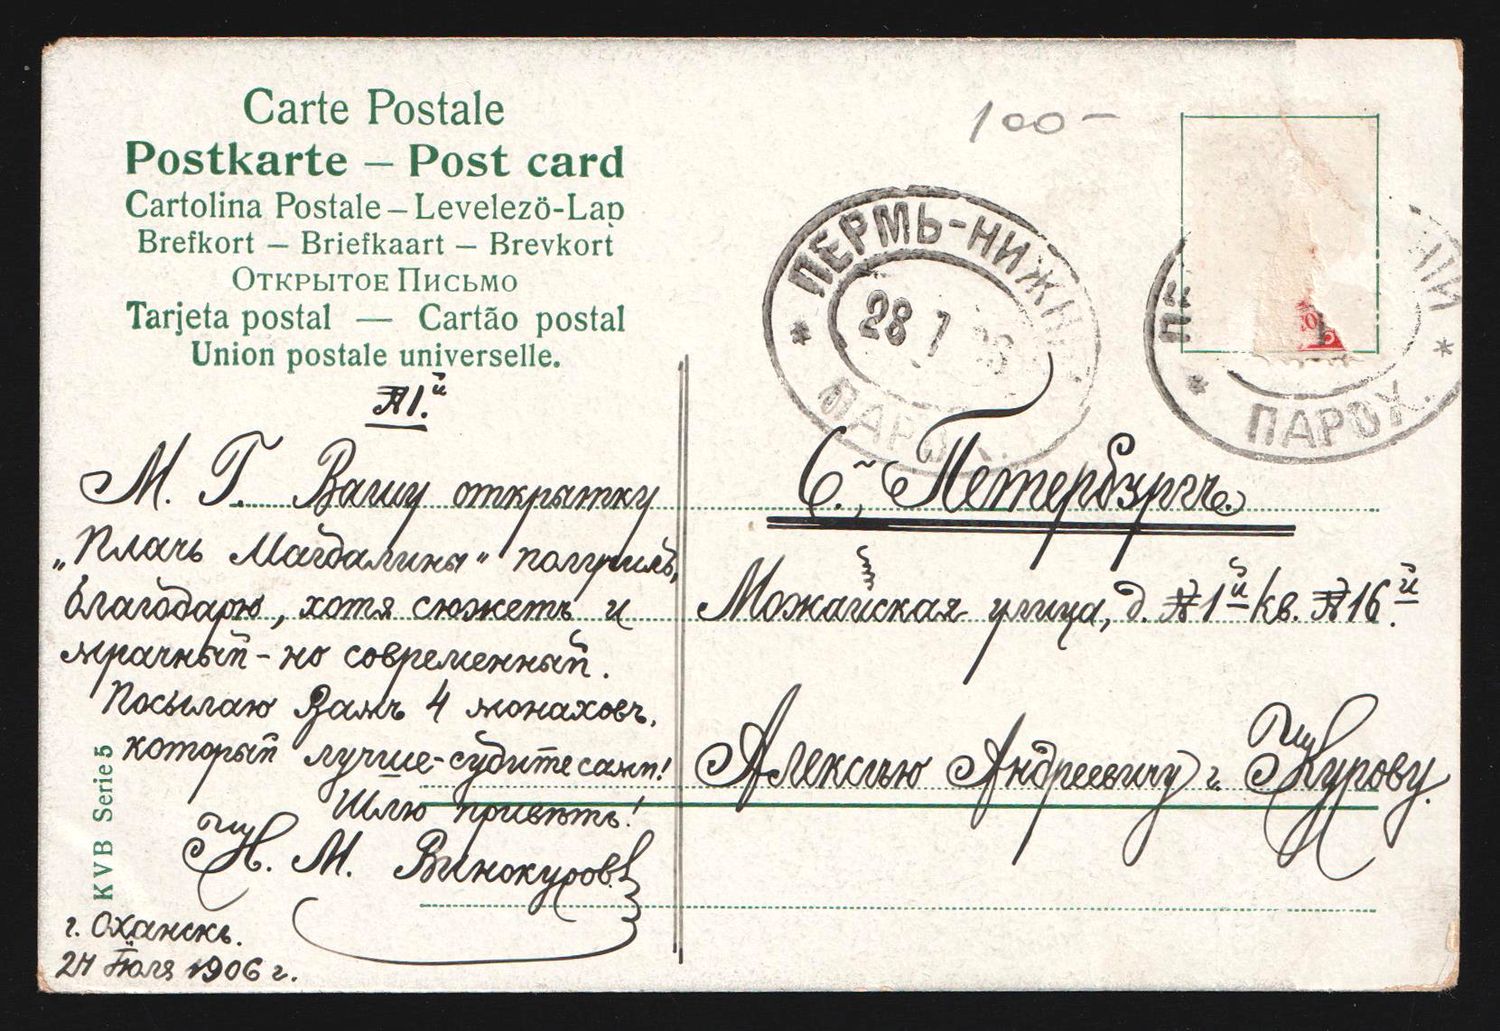 Carte Postale
Postkarte – Post card
Cartolina Postale – Levelező-Lap
Brefkort – Briefkaart – Brevkort
Открытое Письмо
Tarjeta postal — Cartão postal
Union postale universelle.
100-
ПЕРМЬ-НИЖН
28 7
ПАРОХ.
НИЙ
ПАРОХ.
№ 1.й
М. Г. Вашу открытку
„Плачь Магдалины“ получилъ,
благодарю, хотя сюжетъ и
мрачный - но современный.
Посылаю Вамъ 4 монаховъ,
который лучше - судите сами!
Шлю привѣтъ!
Н. М. Винокуровъ
г. Оханскъ.
24 Іюля 1906 г.
KVB Serie 5
С. Петербургъ.
Можайская улица, д. № 1й кв. № 16.й
Алексѣю Андреевичу г. Журову.